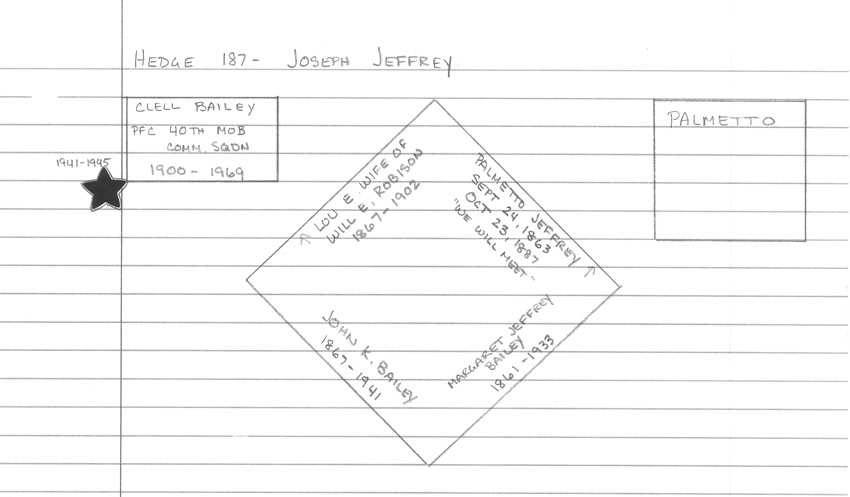 HEDGE 187- JOSEPH JEFFREY
CLELL BAILEY
PFC 40TH MOB
COMM. SQDN
1900-1969
1941-1945
↑ LOU E. WIFE OF
WILL E. ROBISON
1867-1902
PALMETTO JEFFREY ↑
SEPT 24, 1863
OCT 23, 1887
"WE WILL MEET"
PALMETTO
JOHN K. BAILEY
1867-1941
MARGARET JEFFREY
BAILEY
1861-1933